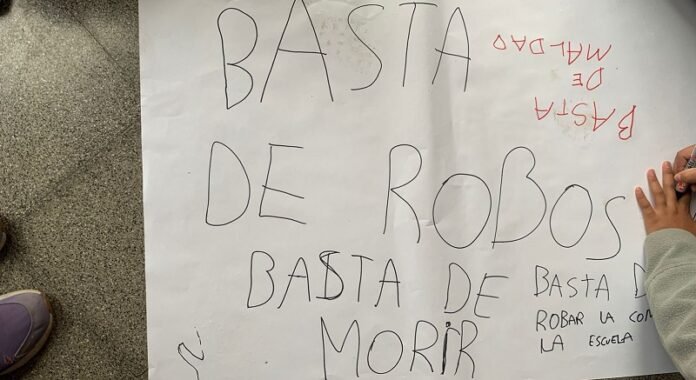 BASTA
DE ROBOS
BASTA DE
MORIR
BASTA
DE
MALDAD
BASTA
ROBAR LA
LA ESCUELA